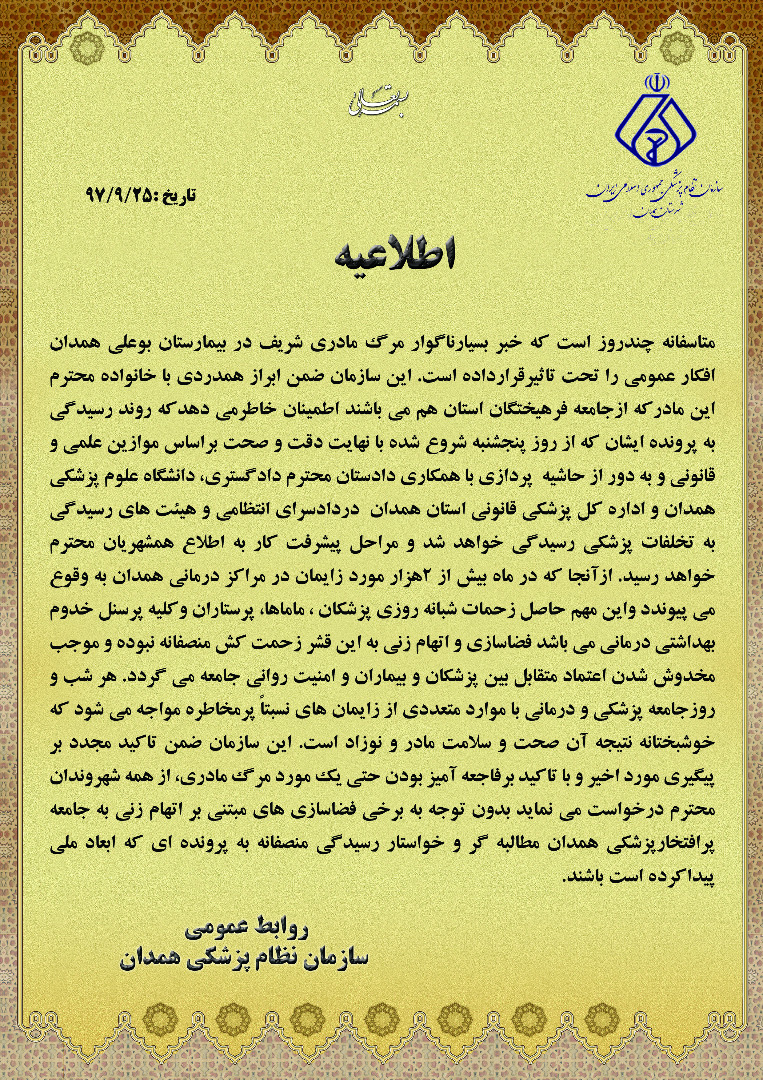 بسمه تعالی
سازمان نظام پزشکی جمهوری اسلامی ایران
شهرستان همدان
تاریخ :۹۷/۹/۲۵
اطلاعیه
متاسفانه چندروز است که خبر بسیارناگوار مرگ مادری شریف در بیمارستان بوعلی همدان
افکار عمومی را تحت تاثیرقرارداده است. این سازمان ضمن ابراز همدردی با خانواده محترم
این مادرکه ازجامعه فرهیختگان استان هم می باشند اطمینان خاطرمی دهدکه روند رسیدگی
به پرونده ایشان که از روز پنجشنبه شروع شده با نهایت دقت و صحت براساس موازین علمی و
قانونی و به دور از حاشیه پردازی با همکاری دادستان محترم دادگستری، دانشگاه علوم پزشکی
همدان و اداره کل پزشکی قانونی استان همدان دردادسرای انتظامی و هیئت های رسیدگی
به تخلفات پزشکی رسیدگی خواهد شد و مراحل پیشرفت کار به اطلاع همشهریان محترم
خواهد رسید. ازآنجا که در ماه بیش از ۲هزار مورد زایمان در مراکز درمانی همدان به وقوع
می پیوندد واین مهم حاصل زحمات شبانه روزی پزشکان ، ماماها، پرستاران وکلیه پرسنل خدوم
بهداشتی درمانی می باشد فضاسازی و اتهام زنی به این قشر زحمت کش منصفانه نبوده و موجب
مخدوش شدن اعتماد متقابل بین پزشکان و بیماران و امنیت روانی جامعه می گردد. هر شب و
روزجامعه پزشکی و درمانی با موارد متعددی از زایمان های نسبتاً پرمخاطره مواجه می شود که
خوشبختانه نتیجه آن صحت و سلامت مادر و نوزاد است. این سازمان ضمن تاکید مجدد بر
پیگیری مورد اخیر و با تاکید برفاجعه آمیز بودن حتی یک مورد مرگ مادری، از همه شهروندان
محترم درخواست می نماید بدون توجه به برخی فضاسازی های مبتنی بر اتهام زنی به جامعه
پرافتخارپزشکی همدان مطالبه گر و خواستار رسیدگی منصفانه به پرونده ای که ابعاد ملی
پیداکرده است باشند.
روابط عمومی
سازمان نظام پزشکی همدان